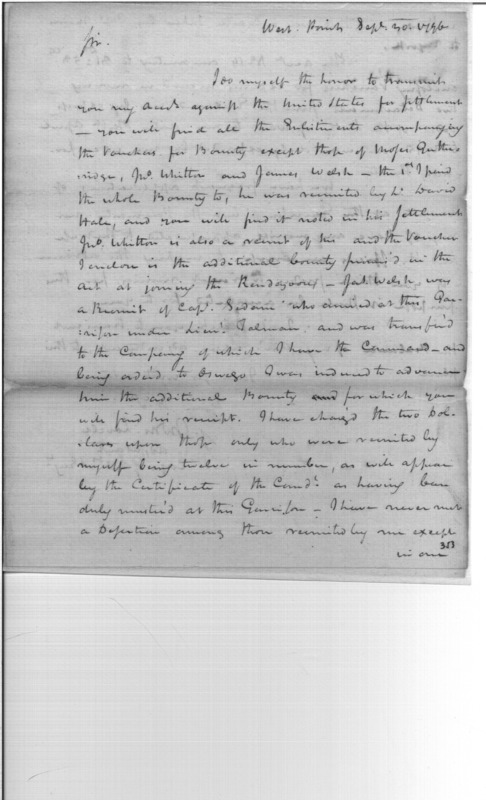 West Point Sept. 30. 1796
Sir.
I do myself the honor to transmit
you my Accts against the United States for settlement
— you will find all the Enlistments accompanying
the Vouchers for Bounty except those of Moses
, Jno. Whitton and James Welsh — the 1st I paid
the whole Bounty to, he was recruited by Lt David
Hale, and you will find it noted in his Settlement
Jno. Whitton is also a recruit of his and the Voucher
I enclose is the additional bounty in the
Act at joining the Rendezvous — Jas. Welsh, was
a Recruit of Capt. who arrived at this Gar-
rison under Lieut. Talman and was transfd
to the Company of which I have the Command — and
being orded to Oswego I was induced to advance
him the additional Bounty and for which you
will find his receipt. I have chargd the two Dol-
lars upon those only who were recruited by
myself being twelve in number, as will appear
by the Certificate of the Comdt as having been
duly musterd at this Garrison — I have never met
a Desertion among those recruited by me except
353
in one